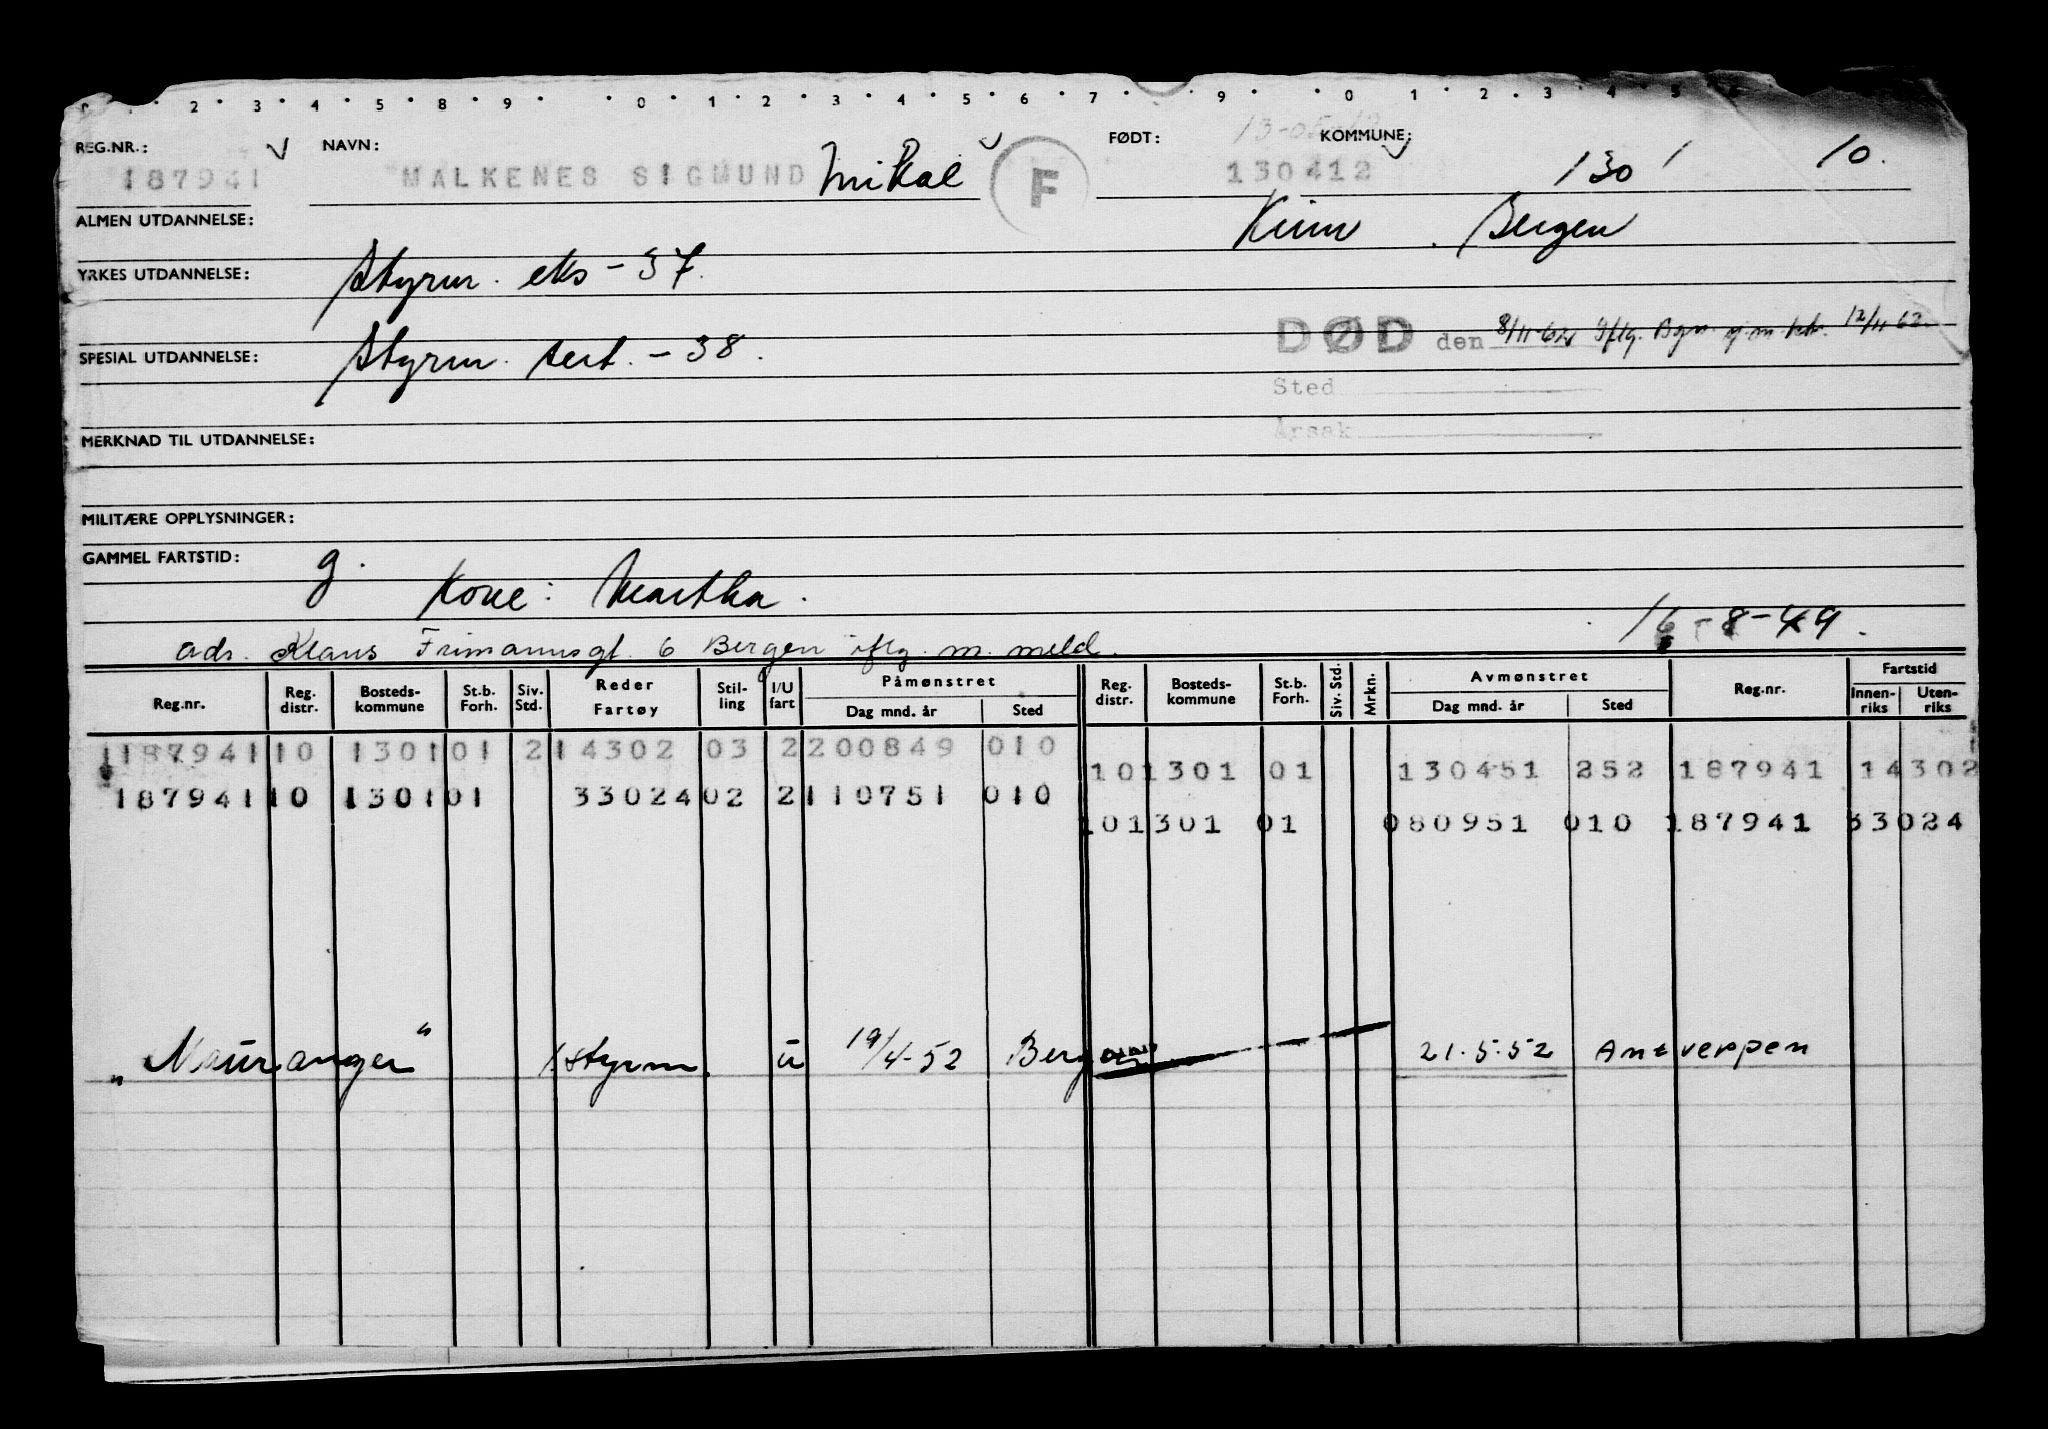 2 3 4 5 8 9 0 1 2 3 4 5 6 7 9 0 1 2 3 4 5
REG.NR.: NAVN: FØDT: KOMMUNE:
187941 MALKENES SIGMUND Mikal F 130412 1301 10.
ALMEN UTDANNELSE: Bergen
YRKES UTDANNELSE: Styrm. eks - 37.
DØD den 8/11-62 Iflg. 12/11 62.
SPESIAL UTDANNELSE: Styrm. sert. - 38.
Sted
Årsak
MERKNAD TIL UTDANNELSE:
MILITÆRE OPPLYSNINGER:
GAMMEL FARTSTID: g.
Kone: Martha.
16-8-49.
adr. Klaus Frimannsgt. 6 Bergen iflg. m. meld.
Reg.nr. Reg. distr. Bosteds-kommune St.b. Forh. Siv. Std. Reder Fartøy Stil-ling I/U fart Påmønstret Dag mnd. år Sted Reg. distr. Bosteds-kommune St.b. Forh. Siv. Std. Mrkn. Avmønstret Dag mnd. år Sted Reg.nr. Fartstid Innen-riks Uten-riks
187941 10 1301 01 2 14302 03 2 200849 010
10 1301 01 130451 252 187941 14302
187941 10 1301 01 33024 02 2 110751 010
10 1301 01 080951 010 187941 33024
„Mauranger“ 1 styrm. u 19/4-52 Bergen 21.5.52 Antverpen